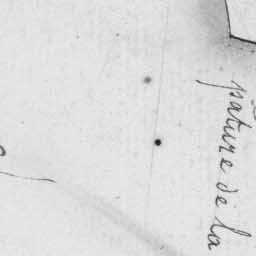 pature de la